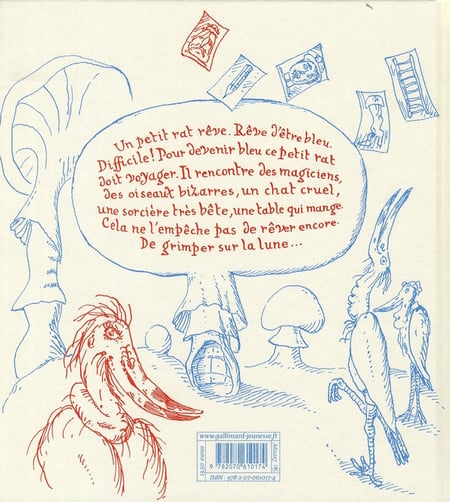 Un petit rat rêve. Rêve d'être bleu.
Difficile! Pour devenir bleu ce petit rat
doit voyager. Il rencontre des magiciens,
des oiseaux bizarres, un chat cruel,
une sorcière très bête, une table qui mange.
Cela ne l'empêche pas de rêver encore.
De grimper sur la lune...
www.gallimard-jeunesse.fr
9 782070 610174
ISBN : 978-2-07-061017-4